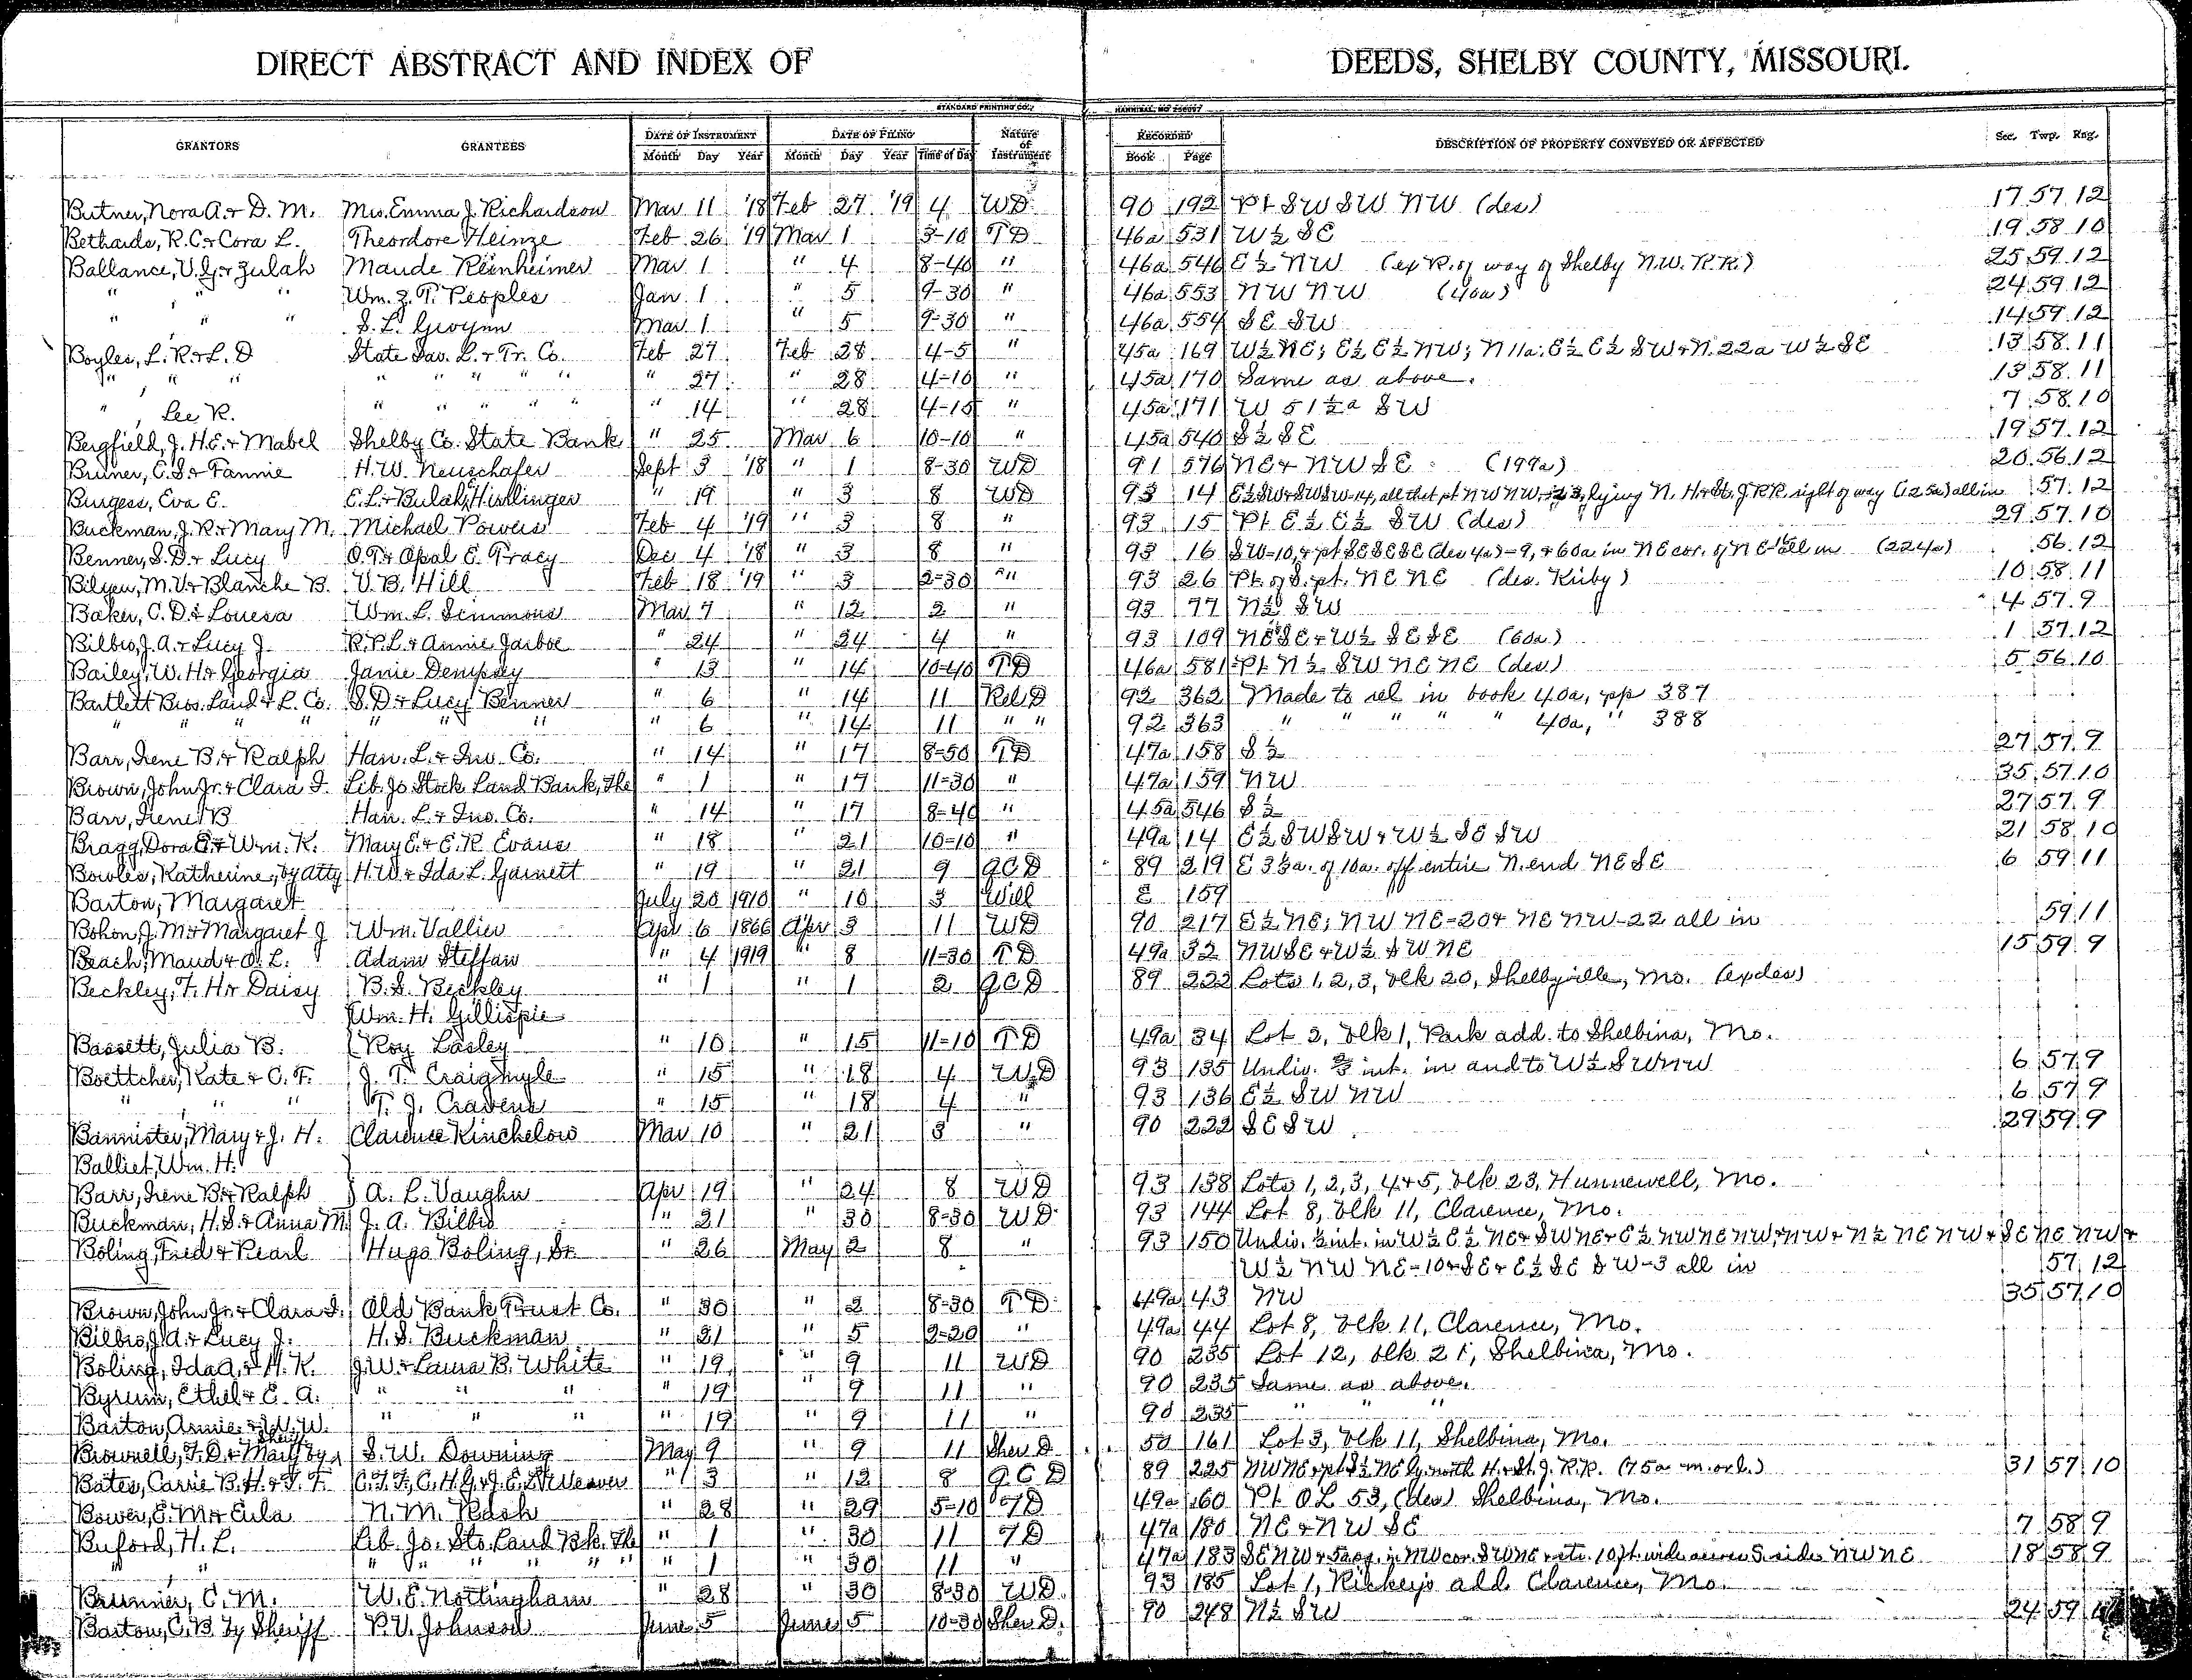 DIRECT ABSTRACT AND INDEX OF DEEDS, SHELBY COUNTY, MISSOURI.
STANDARD PRINTING CO., HANNIBAL, MO
GRANTORS GRANTEES DATE OF INSTRUMENT DATE OF FILING Nature of Instrument RECORDED DESCRIPTION OF PROPERTY CONVEYED OR AFFECTED Sec. Twp. Rng.
Month Day Year Month Day Year Time of Day Book Page
Butner, Nora A. & D. M. Mrs. Emma J. Richardson Mar 11 '18 Feb 27 '19 4 WD 90 192 Pt SW SW NW (des) 17 57 12
Bethards, R. C. & Cora L. Theordore Heinze Feb 26 '19 Mar 1 3-10 TD 46a 531 W½ SE 19 58 10
Ballance, U. G. & Zulah Maude Reinheimer Mar 1 " 4 8-40 " 46a 546 E½ NW (ex R. of way of Shelby N.W. R.R.) 25 59 12
" " " Wm. Z. T. Peoples Jan 1 " 5 9-30 " 46a 553 NW NW (40a) 24 59 12
" " " S. L. Gwynn Mar 1 " 5 9-30 " 46a 554 SE SW 14 59 12
Boyles, L. R. & L. D State Sav. L. & Tr. Co. Feb 27 Feb 28 4-5 " 45a 169 W½ NE; E½ E½ NW; N 11a. E½ E½ SW & N. 22a W½ SE 13 58 11
" " " " " " " " " 27 " 28 4-10 " 45a 170 Same as above. 13 58 11
" , Lee R. " " " " " " 14 " 28 4-15 " 45a 171 W 51½a SW 7 58 10
Bergfield, J. H. E. & Mabel Shelby Co. State Bank " 25 Mar 6 10-10 " 45a 540 S½ SE 19 57 12
Bruner, E. S. & Fannie H. W. Neuschafer Sept 3 '18 " 1 8-30 WD 91 576 NE & NW SE (199a) 20 56 12
Burgess, Eva E. E. L. & Bulah Hirlinger " 19 " 3 8 WD 93 14 E½ SW & SW SW-14, all that pt NW NW, lying N. H. & St. J. R.R. right of way (125a) all in 57 12
Buckman, J. R. & Mary M. Michael Powers Feb 4 '19 " 3 8 " 93 15 Pt E½ E½ SW (des) 29 57 10
Benner, S. D. & Lucy O. T. & Opal E. Tracy Dec 4 '18 " 3 8 " 93 16 SW-10, & pt SE SE SE (des 4a)-9, & 60a in NE cor. of NE all in (224a) 56 12
Bilyeu, M. V. & Blanche B. V. B. Hill Feb 18 '19 " 3 2-30 " 93 26 Pt of S. pt. NE NE (des. Kirby) 10 58 11
Baker, C. D. & Louesa Wm. L. Simmons Mar 7 " 12 2 " 93 77 N½ SW 4 57 9
Bilbro, J. A. & Lucy J. R. P. L. & Annie Jarboe " 24 " 24 4 " 93 109 NE SE & W½ SE SE (60a) 1 57 12
Bailey, W. H. & Georgia Janie Dempsey " 13 " 14 10-40 TD 46a 581 Pt N½ SW NE NE (des) 5 56 10
Bartlett Bros. Land & L. Co. S. D. & Lucy Benner " 6 " 14 11 Rel D 92 362 Made to rel in book 40a, pp 387
" " " " " " " " 6 " 14 11 " " 92 363 " " " " " 40a, " 388
Barr, Irene B. & Ralph Han. L. & Inv. Co. " 14 " 17 8-50 TD 47a 158 S½ 27 57 9
Brown, John Jr. & Clara I. Lib. Jo. Stock Land Bank, The " 1 " 17 11-30 " 47a 159 NW 35 57 10
Barr, Irene B Han. L. & Inv. Co. " 14 " 17 8-40 " 45a 546 S½ 27 57 9
Bragg, Dora E. & Wm. K. Mary E. & E. R. Evans " 18 " 21 10-10 " 49a 14 E½ SW SW & W½ SE SW 21 58 10
Bowles, Katherine, by atty H. W. & Ida L. Garnett " 19 " 21 9 QCD 89 219 E 3⅓a. of 10a. off entire N. end NE SE 6 59 11
Barton, Margaret July 20 1910 " 10 3 Will E 159
Bohon, J. M. & Margaret J Wm. Vallier Apr 6 1866 Apr 3 11 WD 90 217 E½ NE; NW NE-20 & NE NW-22 all in 59 11
Beach, Maud & O. L. Adam Steffan " 4 1919 " 8 11-30 TD 49a 32 NW SE & W½ SW NE 15 59 9
Beckley, F. H. & Daisy B. S. Beckley " 1 " 1 2 QCD 89 222 Lots 1, 2, 3, blk 20, Shelbyville, Mo. (ex des)
Wm. H. Gillispie
Bassett, Julia B. Roy Lasley " 10 " 15 11-10 TD 49a 34 Lot 2, blk 1, Park add. to Shelbina, Mo.
Boettcher, Kate & C. F. J. T. Craigmyle " 15 " 18 4 WD 93 135 Undiv. int. in and to W½ SW NW 6 57 9
" " " T. J. Cravens " 15 " 18 4 " 93 136 E½ SW NW 6 57 9
Bannister, Mary & J. H. Clarence Kinchelow Mar 10 " 21 3 " 90 222 SE SW 29 59 9
Balliet, Wm. H.
Barr, Irene B. & Ralph A. L. Vaughn Apr 19 " 24 8 WD 93 138 Lots 1, 2, 3, 4 & 5, blk 23, Hunnewell, Mo.
Buckman, H. S. & Anna M. J. A. Bilbro " 21 " 30 8-30 WD 93 144 Lot 8, blk 11, Clarence, Mo.
Boling, Fred & Pearl Hugo Boling, Sr. " 26 May 2 8 " 93 150 Undiv. ½ int. in W½ E½ NE & SW NE & E½ NW NE NW & NW & N½ NE NW & SE NE NW &
W½ NW NE-10 & SE & E½ SE SW-3 all in 57 12
Brown, John Jr. & Clara I. Old Bank Trust Co. " 30 " 2 8-30 TD 49a 43 NW 35 57 10
Bilbro, J. A. & Lucy J. H. S. Buckman " 21 " 5 2-20 " 49a 44 Lot 8, blk 11, Clarence, Mo.
Boling, Ida A. & H. K. J. W. & Laura B. White " 19 " 9 11 WD 90 235 Lot 12, blk 21, Shelbina, Mo.
Byrum, Ethel & E. A. " " " " 19 " 9 11 " 90 235 Same as above.
Barton, Annie & W. W. " " " " 19 " 9 11 " 90 235 " " "
Brownell, F. D. & Mary by Sheriff S. W. Downing May 9 " 9 11 Sher D. 50 161 Lot 3, blk 11, Shelbina, Mo.
Bates, Carrie B. H. & T. F. Weaver " 3 " 12 8 QCD 89 225 NW NE & pt S½ NE ly. north H. & St. J. R.R. (75a m. or l.) 31 57 10
Bower, E. M. & Eula N. M. Rash " 28 " 29 5-10 TD 49a 60 Pt OL 53, (des) Shelbina, Mo.
Buford, H. L. Lib. Jo. Sto. Land Bk. The " 1 " 30 11 TD 47a 180 NE & NW SE 7 58 9
" " " " " " " " " 1 " 30 11 " 47a 183 SE NW & 5a sq. in NW cor. SW NE & str. 10 ft. wide across S. side NW NE 18 58 9
Brunner, C. M. W. E. Nottingham " 28 " 30 8-30 WD. 93 185 Lot 1, Rickey's add. Clarence, Mo.
Barton, C. B. by Sheriff P. V. Johnson June 5 June 5 10-30 Sher D. 90 248 N½ SW 24 59